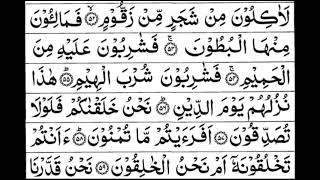 لَاٰكِلُوْنَ مِنْ شَجَرٍ مِّنْ زَقُّوْمٍ ﴿۵۲﴾ فَمَالِـُٔوْنَ
مِنْهَا الْبُطُوْنَ ﴿۵۳﴾ فَشٰرِبُوْنَ عَلَيْهِ مِنَ
الْحَمِيْمِ ﴿۵۴﴾ فَشٰرِبُوْنَ شُرْبَ الْهِيْمِ ﴿۵۵﴾ هٰذَا
نُزُلُهُمْ يَوْمَ الدِّيْنِ ﴿۵۶﴾ نَحْنُ خَلَقْنٰكُمْ فَلَوْلَا
تُصَدِّقُوْنَ ﴿۵۷﴾ اَفَرَءَيْتُمْ مَّا تُمْنُوْنَ ﴿۵۸﴾ ءَاَنْتُمْ
تَخْلُقُوْنَهٗٓ اَمْ نَحْنُ الْخٰلِقُوْنَ ﴿۵۹﴾ نَحْنُ قَدَّرْنَا